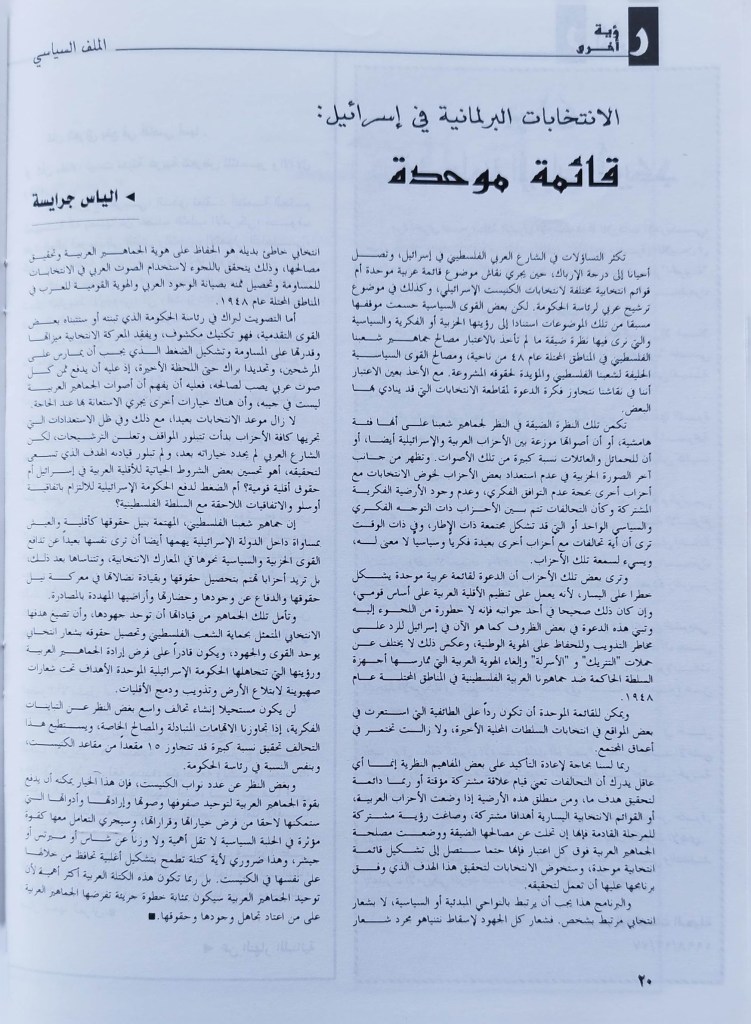 رؤية أخرى
الملف السياسي
الانتخابات البرلمانية في إسرائيل:
قائمة موحدة
◄ الياس جرايسة
تكثر التساؤلات في الشارع العربي الفلسطيني في إسرائيل، وتصل
أحيانا إلى درجة الإرباك، حين يجري نقاش موضوع قائمة عربية موحدة أم
قوائم انتخابية مختلفة لانتخابات الكنيست الإسرائيلي، وكذلك في موضوع
ترشيح عربي لرئاسة الحكومة. لكن بعض القوى السياسية حسمت موقفها
مسبقا من تلك الموضوعات استنادا إلى رؤيتها الحزبية أو الفكرية والسياسية
والتي نرى فيها نظرة ضيقة ما لم تأخذ بالاعتبار مصالح جماهير شعبنا
الفلسطيني في المناطق المحتلة عام ٤٨ من ناحية، ومصالح القوى السياسية
الحليفة لشعبنا الفلسطيني والمؤيدة لحقوقه المشروعة. مع الأخذ بعين الاعتبار
أننا في نقاشنا نتجاوز فكرة الدعوة لمقاطعة الانتخابات التي قد ينادي بها
البعض.
تكمن تلك النظرة الضيقة في النظر لجماهير شعبنا على أنها فئة
هامشية، أو أن أصواتها موزعة بين الأحزاب العربية والإسرائيلية أيضا، أو
أن للحمائل والعائلات نسبة كبيرة من تلك الأصوات. وتظهر من جانب
آخر الصورة الحزبية في عدم استعداد بعض الأحزاب لخوض الانتخابات مع
أحزاب أخرى بحجة عدم التوافق الفكري، وعدم وجود الأرضية الفكرية
المشتركة وكأن التحالفات تتم بين الأحزاب ذات التوجه الفكري
والسياسي الواحد أو التي قد تشكل مجتمعة ذات الإطار، وفي ذات الوقت
ترى أن أية تحالفات مع أحزاب أخرى بعيدة فكرياً وسياسيا لا معنى له،
ويسيء لسمعة تلك الأحزاب.
وترى بعض تلك الأحزاب أن الدعوة لقائمة عربية موحدة يشكل
خطرا على اليسار، لأنه يعمل على تنظيم الأقلية العربية على أساس قومي،
وإن كان ذلك صحيحا في أحد جوانبه فإنه لا خطورة من اللجوء إليه
وتبني هذه الدعوة في بعض الظروف كما هو الآن في إسرائيل للرد على
مخاطر التذويب وللحفاظ على الهوية الوطنية، وعكس ذلك لا يختلف عن
حملات "التتريك" و "الأسرلة" وإلغاء الهوية العربية التي تمارسها أجهزة
السلطة الحاكمة ضد جماهيرنا العربية الفلسطينية في المناطق المحتلة عام
١٩٤٨.
ويمكن للقائمة الموحدة أن تكون رداً على الطائفية التي استعرت في
بعض المواقع في انتخابات السلطات المحلية الأخيرة، ولا زالت تختمر في
أعماق المجتمع.
ربما لسنا بحاجة لإعادة التأكيد على بعض المفاهيم النظرية إنما أي
عاقل يدرك أن التحالفات تعني قيام علاقة مشتركة مؤقتة أو ربما دائمة
لتحقيق هدف ما، ومن منطلق هذه الأرضية إذا وضعت الأحزاب العربية،
أو القوائم الانتخابية اليسارية أهدافا مشتركة، وصاغت رؤية مشتركة
للمرحلة القادمة فإنها إن تخلت عن مصالحها الضيقة ووضعت مصلحة
الجماهير العربية فوق كل اعتبار فإنها حتما ستصل إلى تشكيل قائمة
انتخابية موحدة، وستخوض الانتخابات لتحقيق هذا الهدف الذي وفق
برنامجها عليها أن تعمل لتحقيقه.
والبرنامج هذا يجب أن يرتبط بالنواحي المبدئية أو السياسية، لا بشعار
انتخابي مرتبط بشخص. فشعار كل الجهود لإسقاط نتنياهو مجرد شعار
انتخابي خاطئ بديله هو الحفاظ على هوية الجماهير العربية وتحقيق
مصالحها، وذلك يتحقق باللجوء لاستخدام الصوت العربي في الانتخابات
للمساومة وتحصيل ثمنه بصيانة الوجود العربي والهوية القومية للعرب في
المناطق المحتلة عام ١٩٤٨.
أما التصويت لبراك في رئاسة الحكومة الذي تبنته أو ستتبناه بعض
القوى التقدمية، فهو تكتيك مكشوف، ويفقد المعركة الانتخابية ميزاتها
وقدرتها على المساومة وتشكيل الضغط الذي يجب أن يمارس على
المرشحين، وتحديدا براك حتى اللحظة الأخيرة، إذ عليه أن يدفع ثمن كل
صوت عربي يصب لصالحه، فعليه أن يفهم أن أصوات الجماهير العربية
ليست في جيبه، وأن هناك خيارات أخرى يجري الاستعانة بها عند الحاجة.
لا زال موعد الانتخابات بعيدا، مع ذلك وفي ظل الاستعدادات التي
تجريها كافة الأحزاب بدأت تتبلور المواقف وتعلن الترشيحات، لكن
الشارع العربي لم يحدد خياراته بعد، ولم تبلور قيادته الهدف الذي تسعى
لتحقيقه، أهو تحسين بعض الشروط الحياتية للأقلية العربية في إسرائيل أم
حقوق أقلية قومية؟ أم الضغط لدفع الحكومة الإسرائيلية للالتزام باتفاقية
أوسلو والاتفاقيات اللاحقة مع السلطة الفلسطينية؟
إن جماهير شعبنا الفلسطيني، المهتمة بنيل حقوقها كأقلية والعيش
بمساواة داخل الدولة الإسرائيلية يهمها أيضا أن ترى نفسها بعيداً عن تدافع
القوى الحزبية والسياسية نحوها في المعارك الانتخابية، وتتناساها بعد ذلك،
بل تريد أحزابا تهتم بتحصيل حقوقها وبقيادة نضالاتها في معركة نيل
حقوقها والدفاع عن وجودها وحضارتها وأراضيها المهددة بالمصادرة.
وتأمل تلك الجماهير من قياداتها أن توحد جهودها، وأن تصيغ هدفها
الانتخابي المتمثل بحماية الشعب الفلسطيني وتحصيل حقوقه بشعار انتخابي
يوحد القوى والجهود، ويكون قادراً على فرض إرادة الجماهير العربية
ورؤيتها التي تتجاهلها الحكومة الإسرائيلية الموحدة الأهداف تحت شعارات
صهيونية لابتلاع الأرض وتذويب ودمج الأقليات.
لن يكون مستحيلا إنشاء تحالف واسع بعض النظر عن التباينات
الفكرية، إذا تجاوزنا الاتهامات المتبادلة والمصالح الخاصة، ويستطيع هذا
التحالف تحقيق نسبة كبيرة قد تتجاوز ١٥ مقعدا من مقاعد الكنيست،
وبنفس النسبة في رئاسة الحكومة.
وبغض النظر عن عدد نواب الكنيست، فإن هذا الخيار يمكنه أن يدفع
بقوة الجماهير العربية لتوحيد صفوفها وصوتها وإرادتها وأدواتها التي
ستمكنها لاحقا من فرض خياراتها وقراراتها، وسيجري التعامل معها كقوة
مؤثرة في الحلبة السياسية لا تقل أهمية ولا وزناً عن شاس أو ميرتس أو
جيشر، وهذا ضروري لأية كتلة تطمح بتشكيل أغلبية تحافظ من خلالها
على نفسها في الكنيست. بل ربما تكون هذه الكتلة العربية أكثر أهمية لأن
توحيد الجماهير العربية سيكون بمثابة خطوة جريئة تفرضها الجماهير العربية
على من اعتاد تجاهل وجودها وحقوقها.■
٢٠